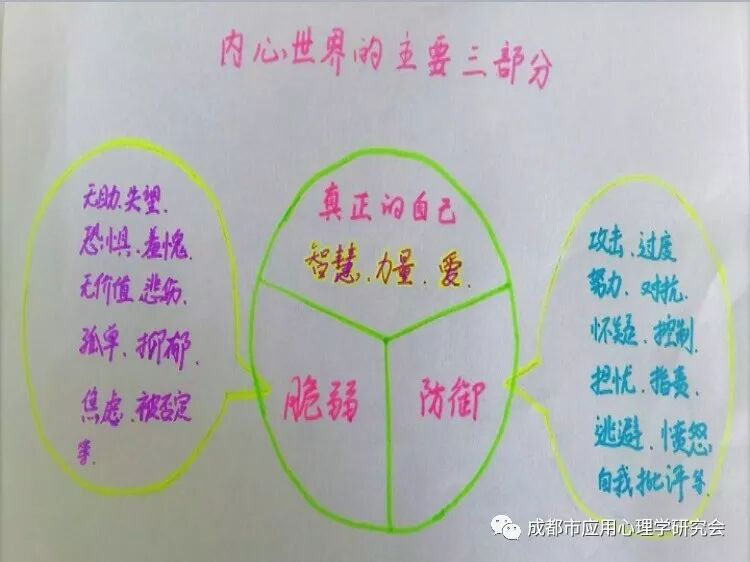 内心世界的主要三部分
无助、失望、
恐惧、羞愧、
无价值 悲伤、
孤单、抑郁、
焦虑、被否定
等、
真正的自己
智慧、力量、爱、
脆弱
防御
攻击、过度
努力、对抗、
怀疑、控制、
担忧、指责、
逃避、愤怒、
自我批评等、
成都市应用心理学研究会